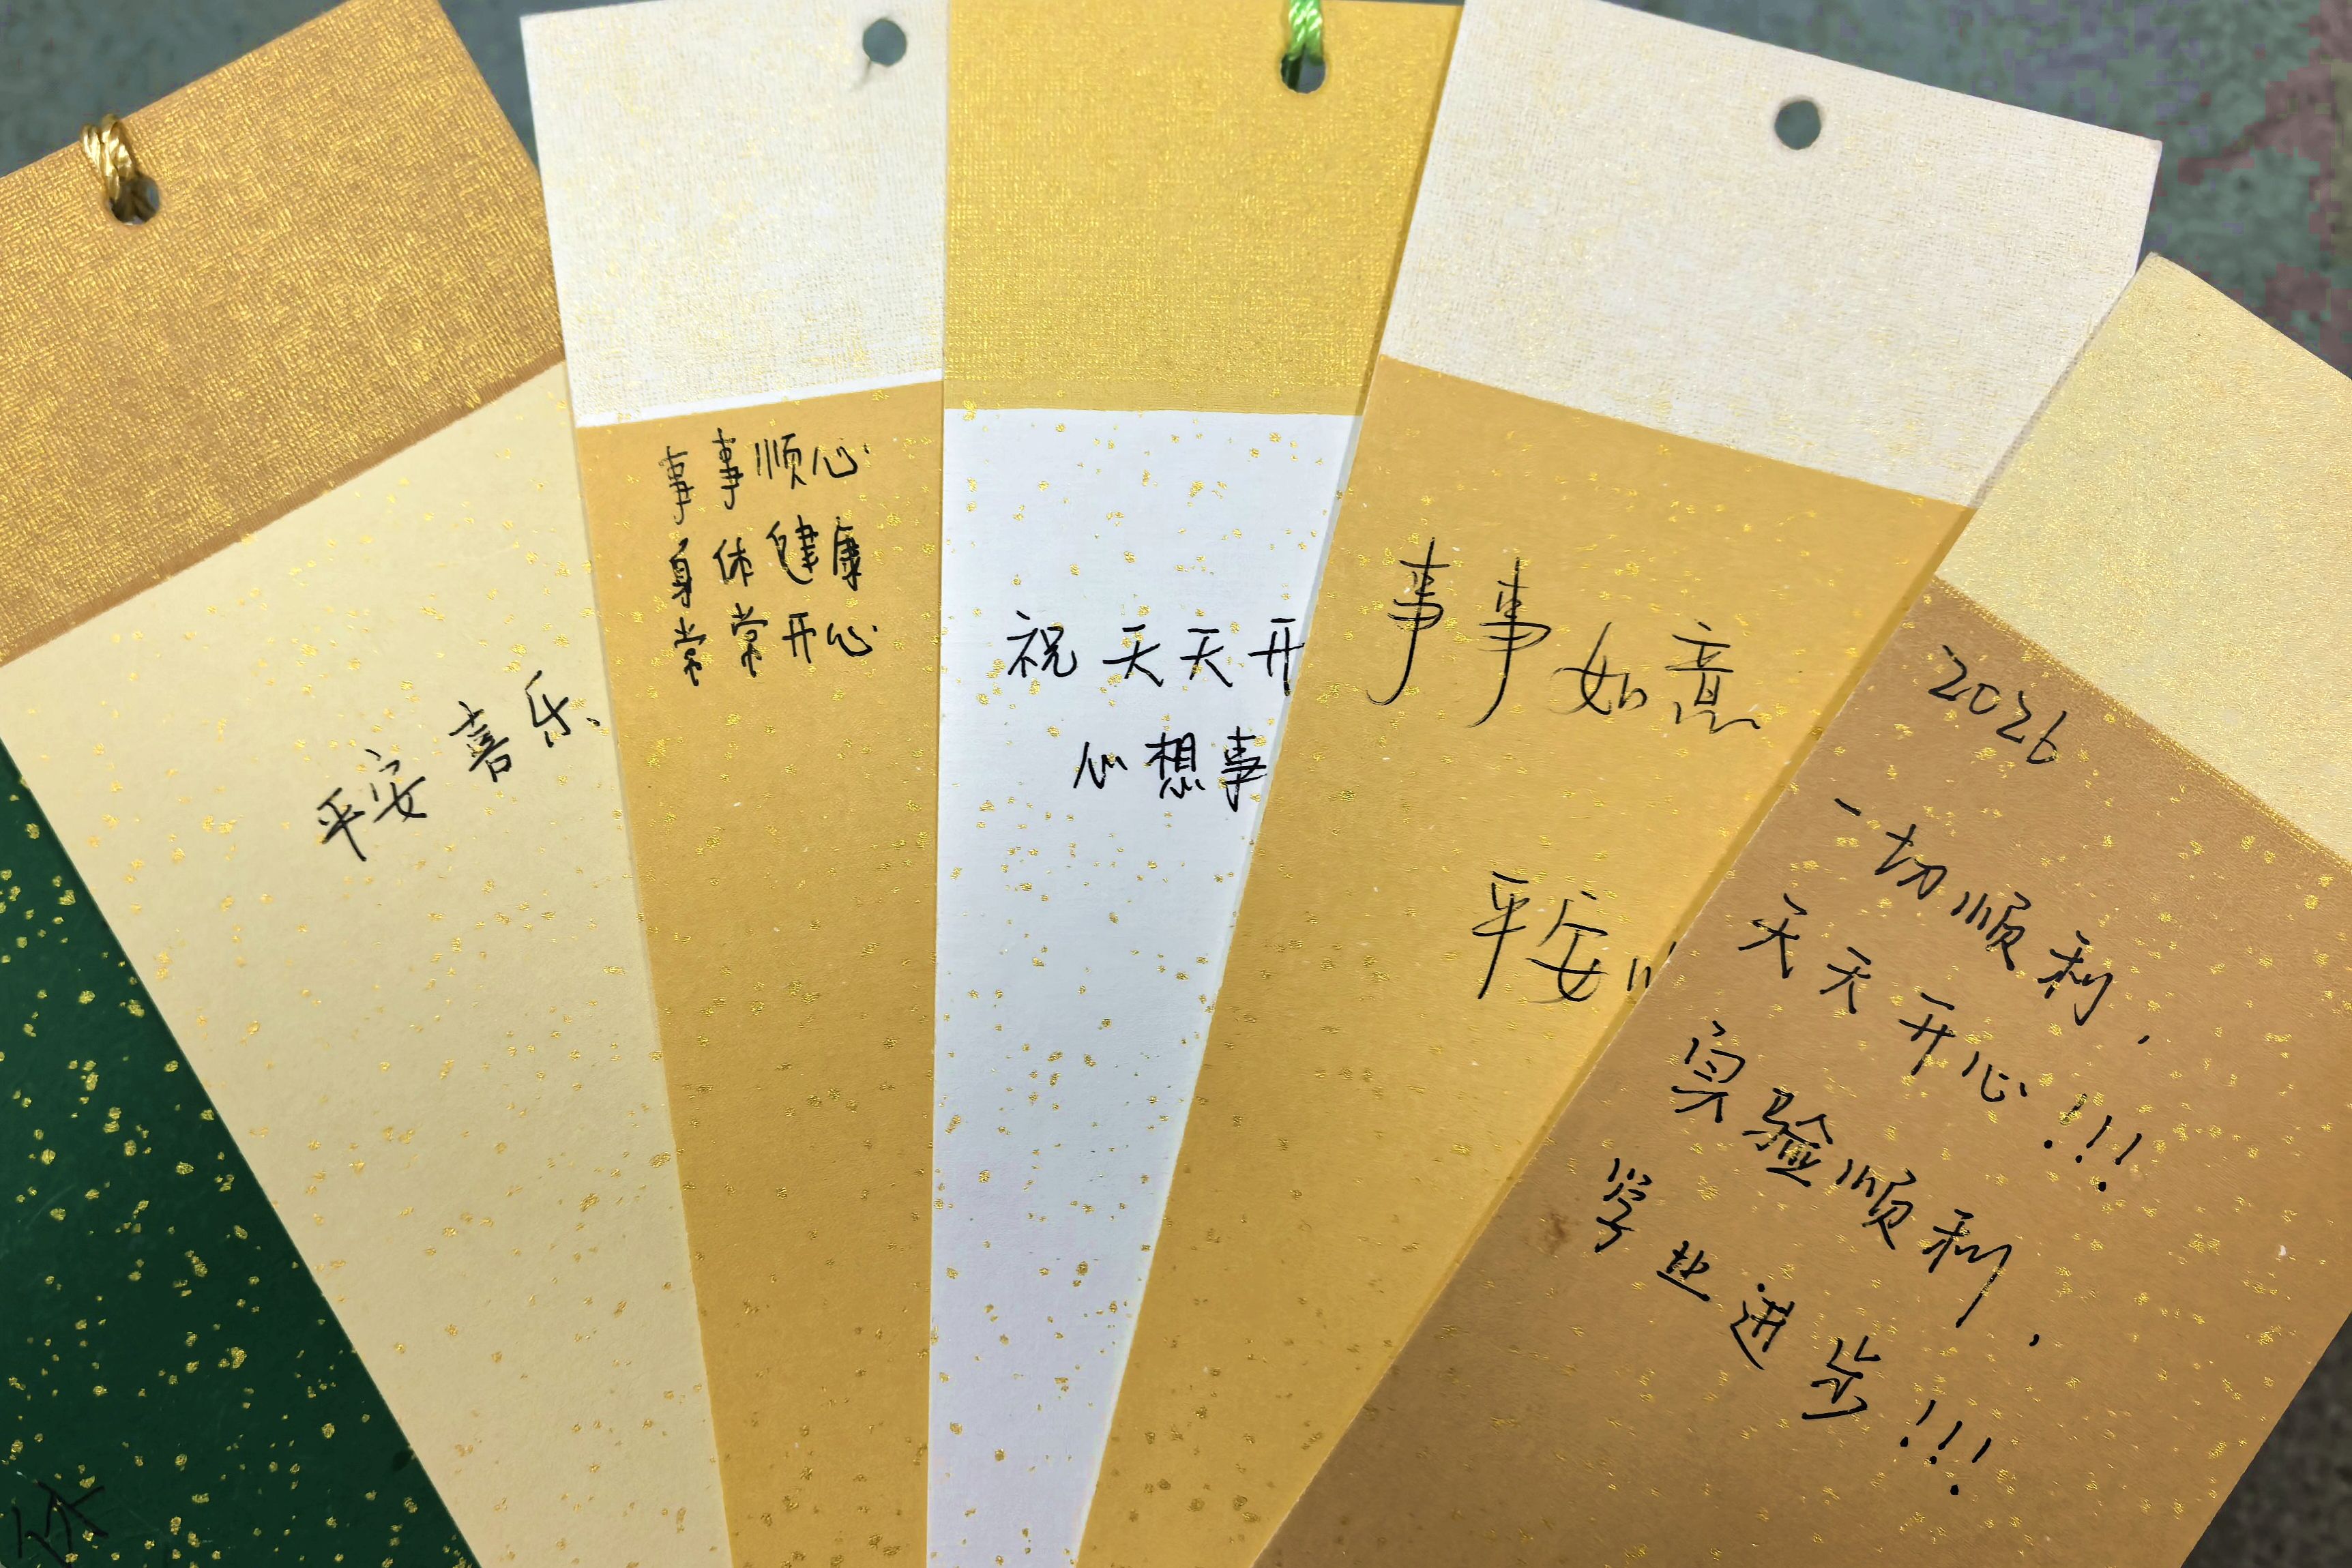 平安喜乐
事事顺心
身体健康
常常开心
祝天天开
心想事
事事如意
平安
2026
一切顺利，
天天开心!!!
实验顺利，
学业进步!!!